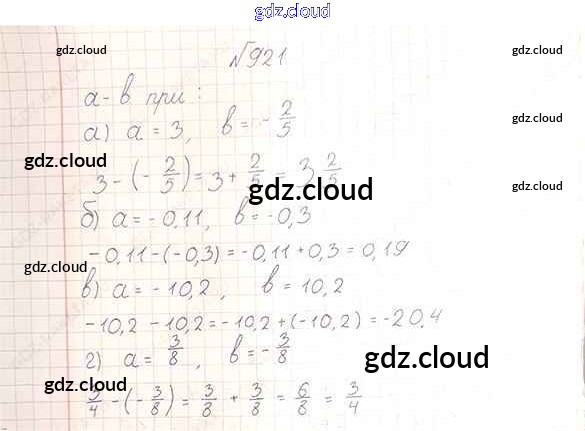 gdz.cloud
gdz.cloud
gdz.cloud
№921
a - b при:
gdz.cloud
а) a = 3, b = - 2/5
gdz.cloud
3 - (- 2/5) = 3 + 2/5 = 3 2/5
gdz.cloud
gdz.cloud
б) a = - 0,11, b = -0,3
- 0,11 - (- 0,3) = - 0,11 + 0,3 = 0,19
gdz.cloud
gdz.cloud
в) a = - 10,2, b = 10,2
-10,2 - 10,2 = -10,2 + (-10,2) = -20,4
г) a = 3/8, b = - 3/8
gdz.cloud
gdz.cloud
3/4 - (- 3/8) = 3/8 + 3/8 = 6/8 = 3/4